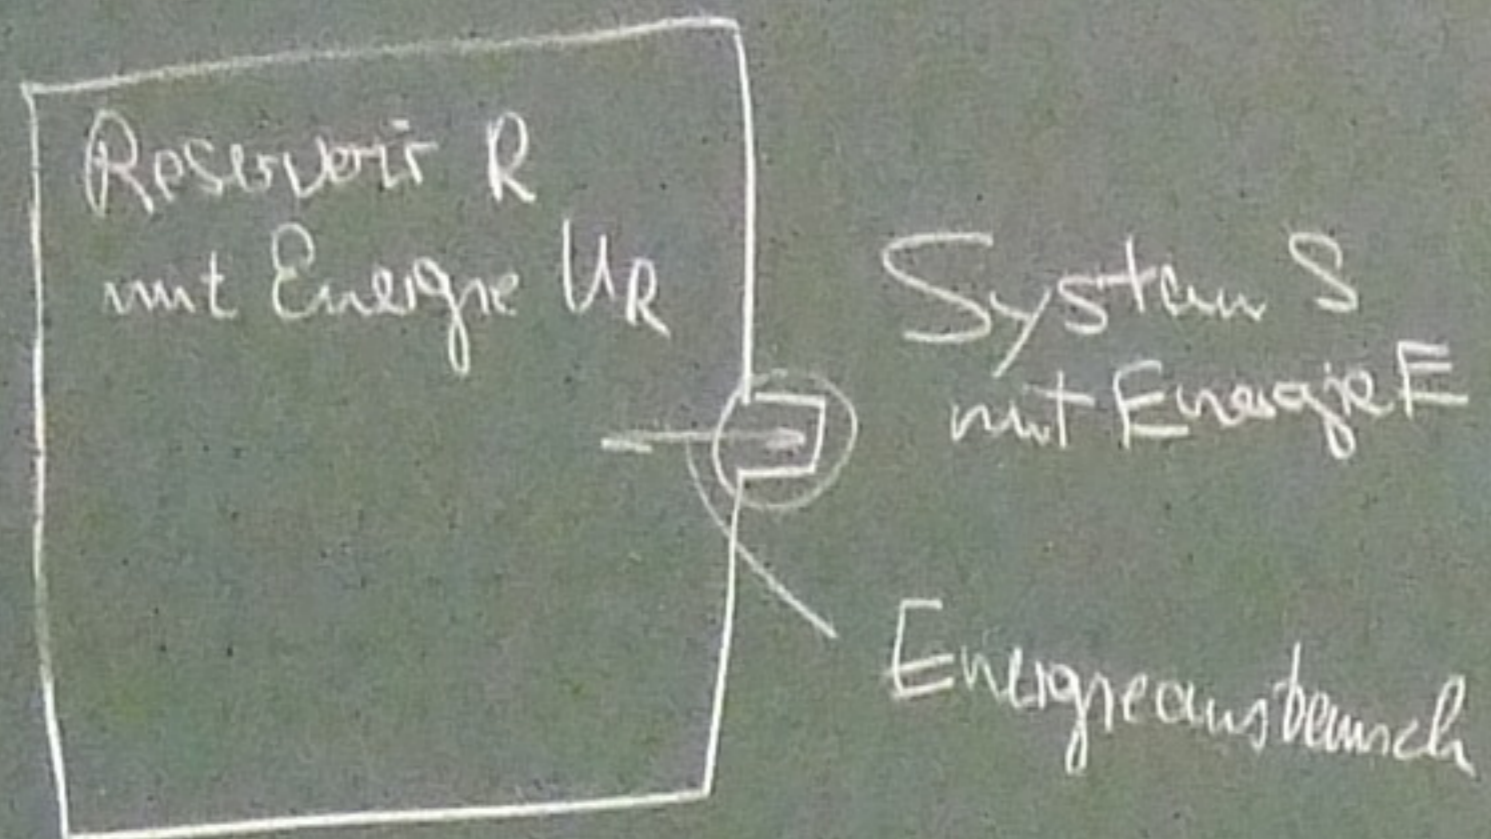 Reservoir R
mit Energie U_R
System S
mit Energie E
Energieaustausch